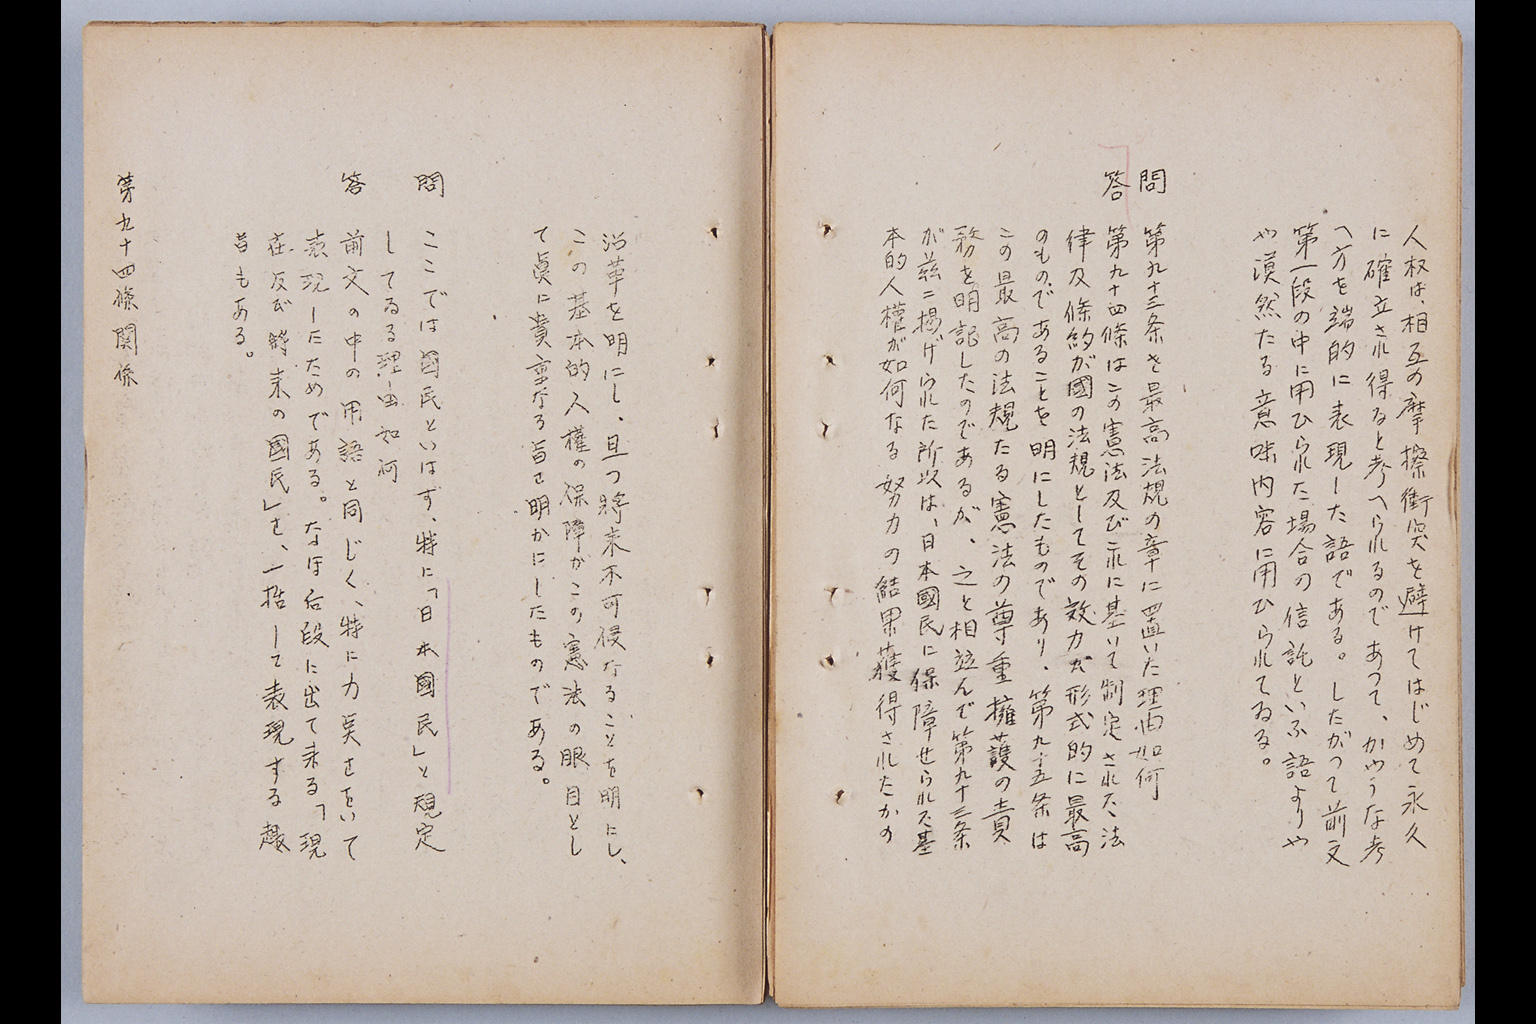 人权は、相互の摩擦衝突を避けてはじめて永久
に確立され得ると考へられるのであつて、かゝうな考
へ方を端的に表現した語である。したがつて前文
第一段の中に用ひられた場合の信託といふ語よりや
や漠然たる意味内容に用ひられてゐる。
問 第九十三条を最高法規の章に置いた理由如何
答 第九十四條はこの憲法及びこれに基いて制定された法
律及條約が國の法規としてその效力が形式的に最高
のものであることを明にしたものであり、第九十五条は
この最高の法規たる憲法の尊重擁護の責
務を明記したのであるが、之と相並んで第九十三条
が茲ニ掲げられた所以は、日本國民に保障せられた基
本的人權が如何なる努力の結果獲得されたかの
沿革を明にし、且つ將来不可侵なることを明にし、
この基本的人權の保障がこの憲法の眼目とし
て真に貴重なる旨を明かにしたものである。
問 ここでは國民といはず、特に「日本國民」と規定
してゐる理由如何
答 前文の中の用語と同じく、特に力点をおいて
表現したためである。なほ后段に出て来る「現
在及び將来の國民」を、一括して表現する趣
旨もある。
第九十四條関係